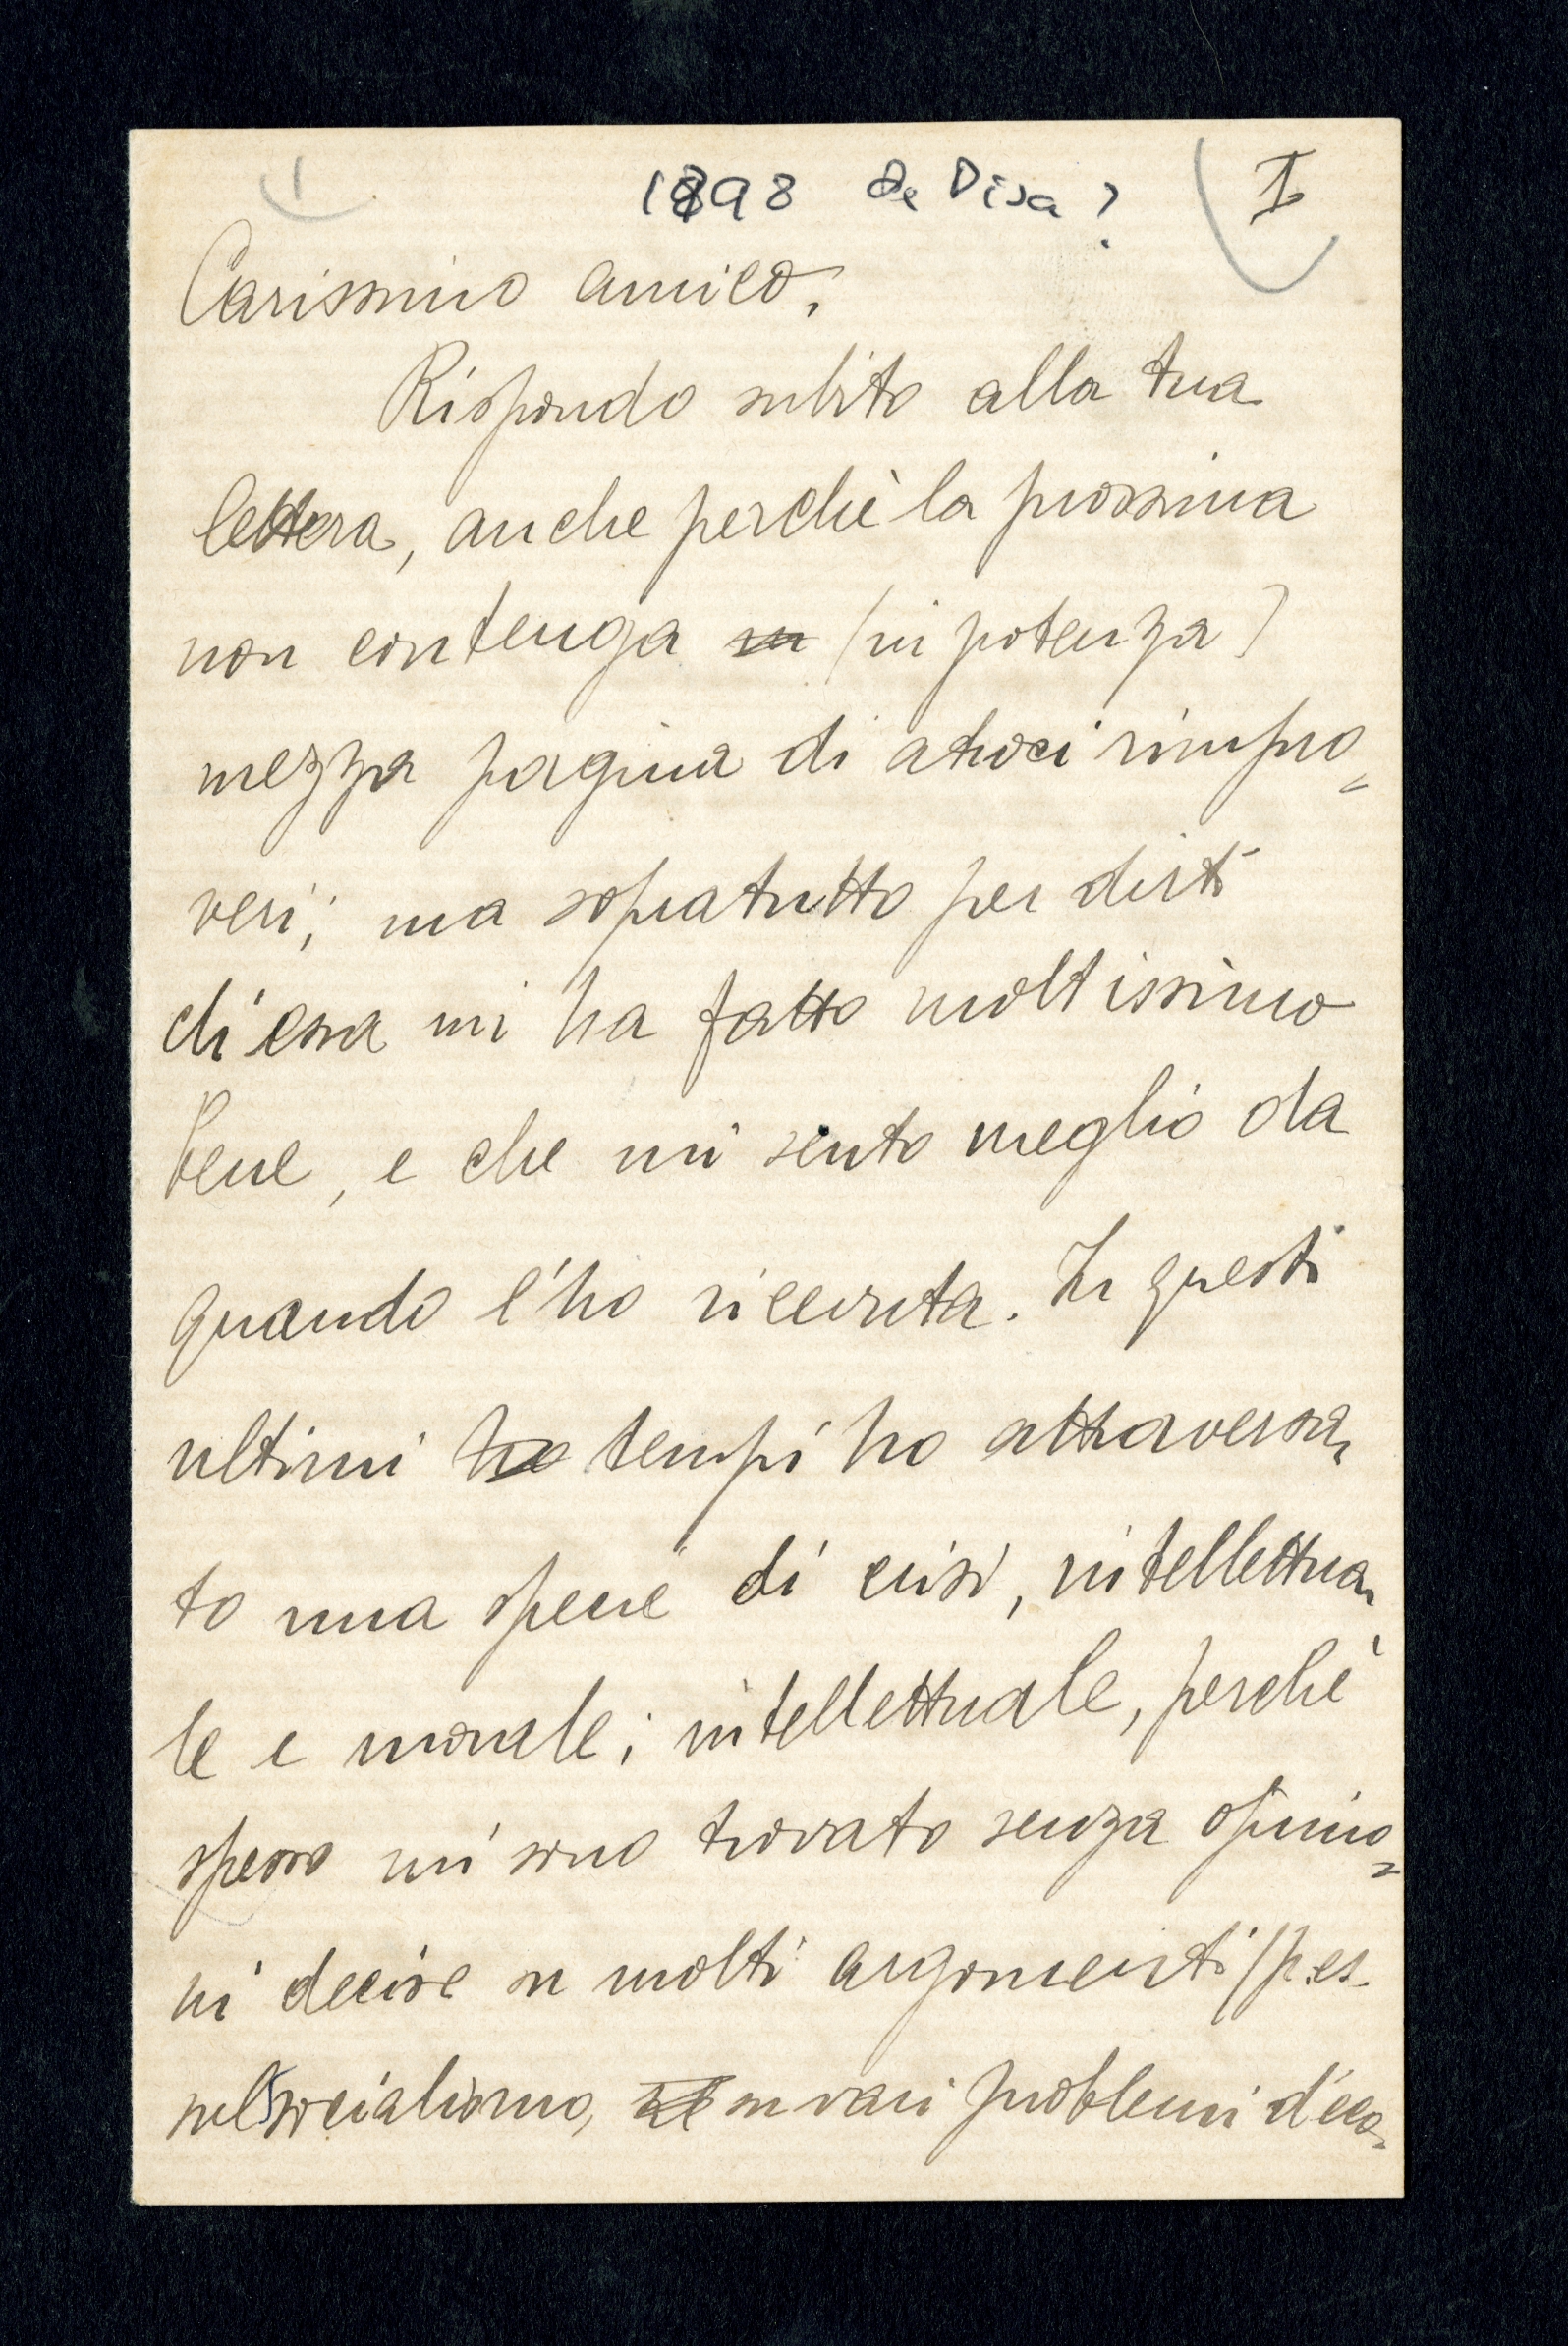 1
1898 da Pisa?
I
Carissimo amico,
Rispondo subito alla tua
lettera, anche perchè la prossima
non contenga (in potenza)
mezza pagina di atroci rimpro=
veri; ma sopratutto per dirti
ch'essa mi ha fatto moltissimo
bene, e che mi sento meglio da
quando l'ho ricevuta. In questi
ultimi ho tempi ho attraversa-
to una specie di crisi, intellettua-
le e morale; intellettuale, perchè
spesso mi sono trovato senza opinio=
ni decise su molti argomenti (p.es.
sul socialismo, su vari problemi d'eco-